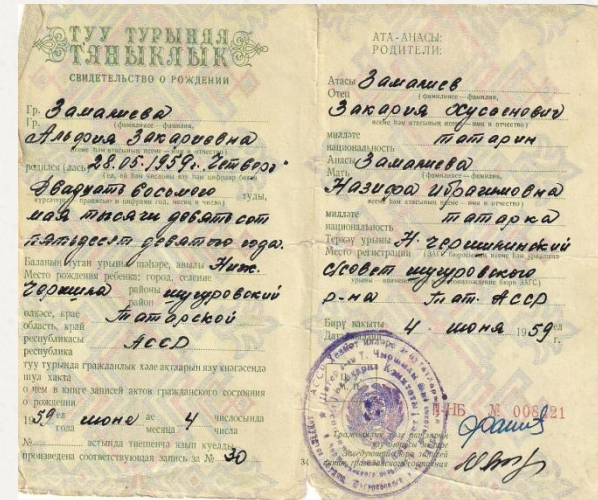 ТУУ ТУРЫНДА
ТАНЫКЛЫК
СВИДЕТЕЛЬСТВО О РОЖДЕНИИ
Гр. Замалиева
Гр. (фамилиясе — фамилия,
Альфия Закариевна
исеме һәм атасының исеме — имя и отчество)
родился (лась) 28.05.1959г. Четверг
(ел, ай һәм числоны язу һәм цифрлар белән
Двадцать восьмого туды,
мая тысяча девятьсот
пятьдесят девятого года.
Баланың туган урыны: шәһәре, авылы Ниж.
Место рождения ребенка: город, селение
Чершила районы шугуровский
район
өлкәсе, крае Татарской
область, край
республикасы АССР
республика
туу турында гражданлык хәле актларын язу кенәгәсендә
шул хакта
о чем в книге записей актов гражданского состояния
о рождении
1959 ел июнь ае 4 числосында
года месяца числа
№ астында тиешенчә язып куелды
произведена соответствующая запись за № 30
АТА-АНАСЫ:
РОДИТЕЛИ:
Атасы Замалиев
Отец (фамилиясе — фамилия,
Закария Хусаенович
исеме һәм атасының исеме — имя и отчество)
милләте татарин
национальность
Анасы Замалиева
Мать (фамилиясе — фамилия,
Назифа Ибрагимовна
исеме һәм атасының исеме — имя и отчество)
милләте татарка
национальность
Теркәү урыны Н-Чершилинский
Место регистрации
с/совет шугуровского
р-на Тат. АССР
Бирү вакыты 4 июня 1959 ел
Дата г.
-НБ №
34